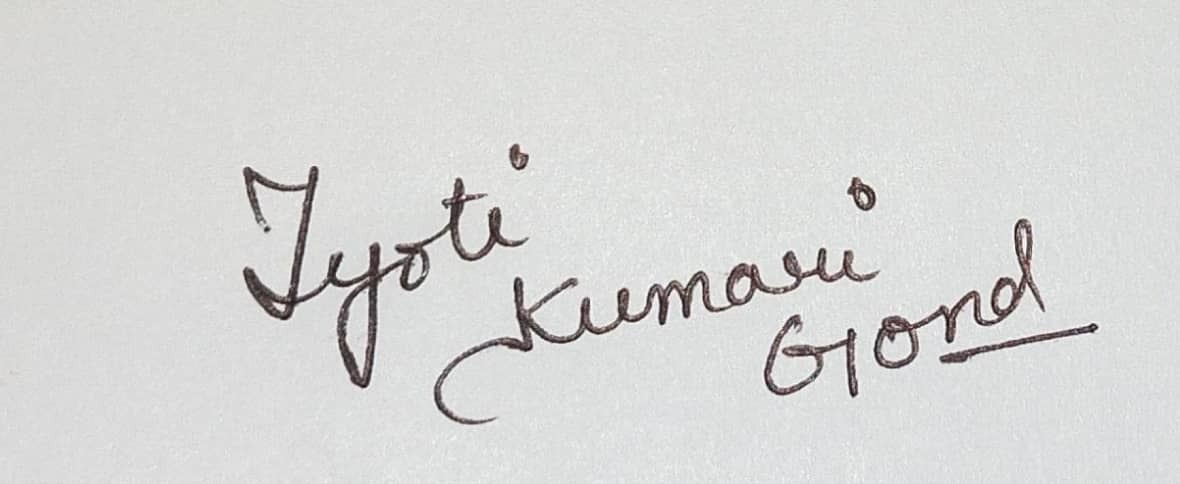 Jyoti
Kumari
Gond